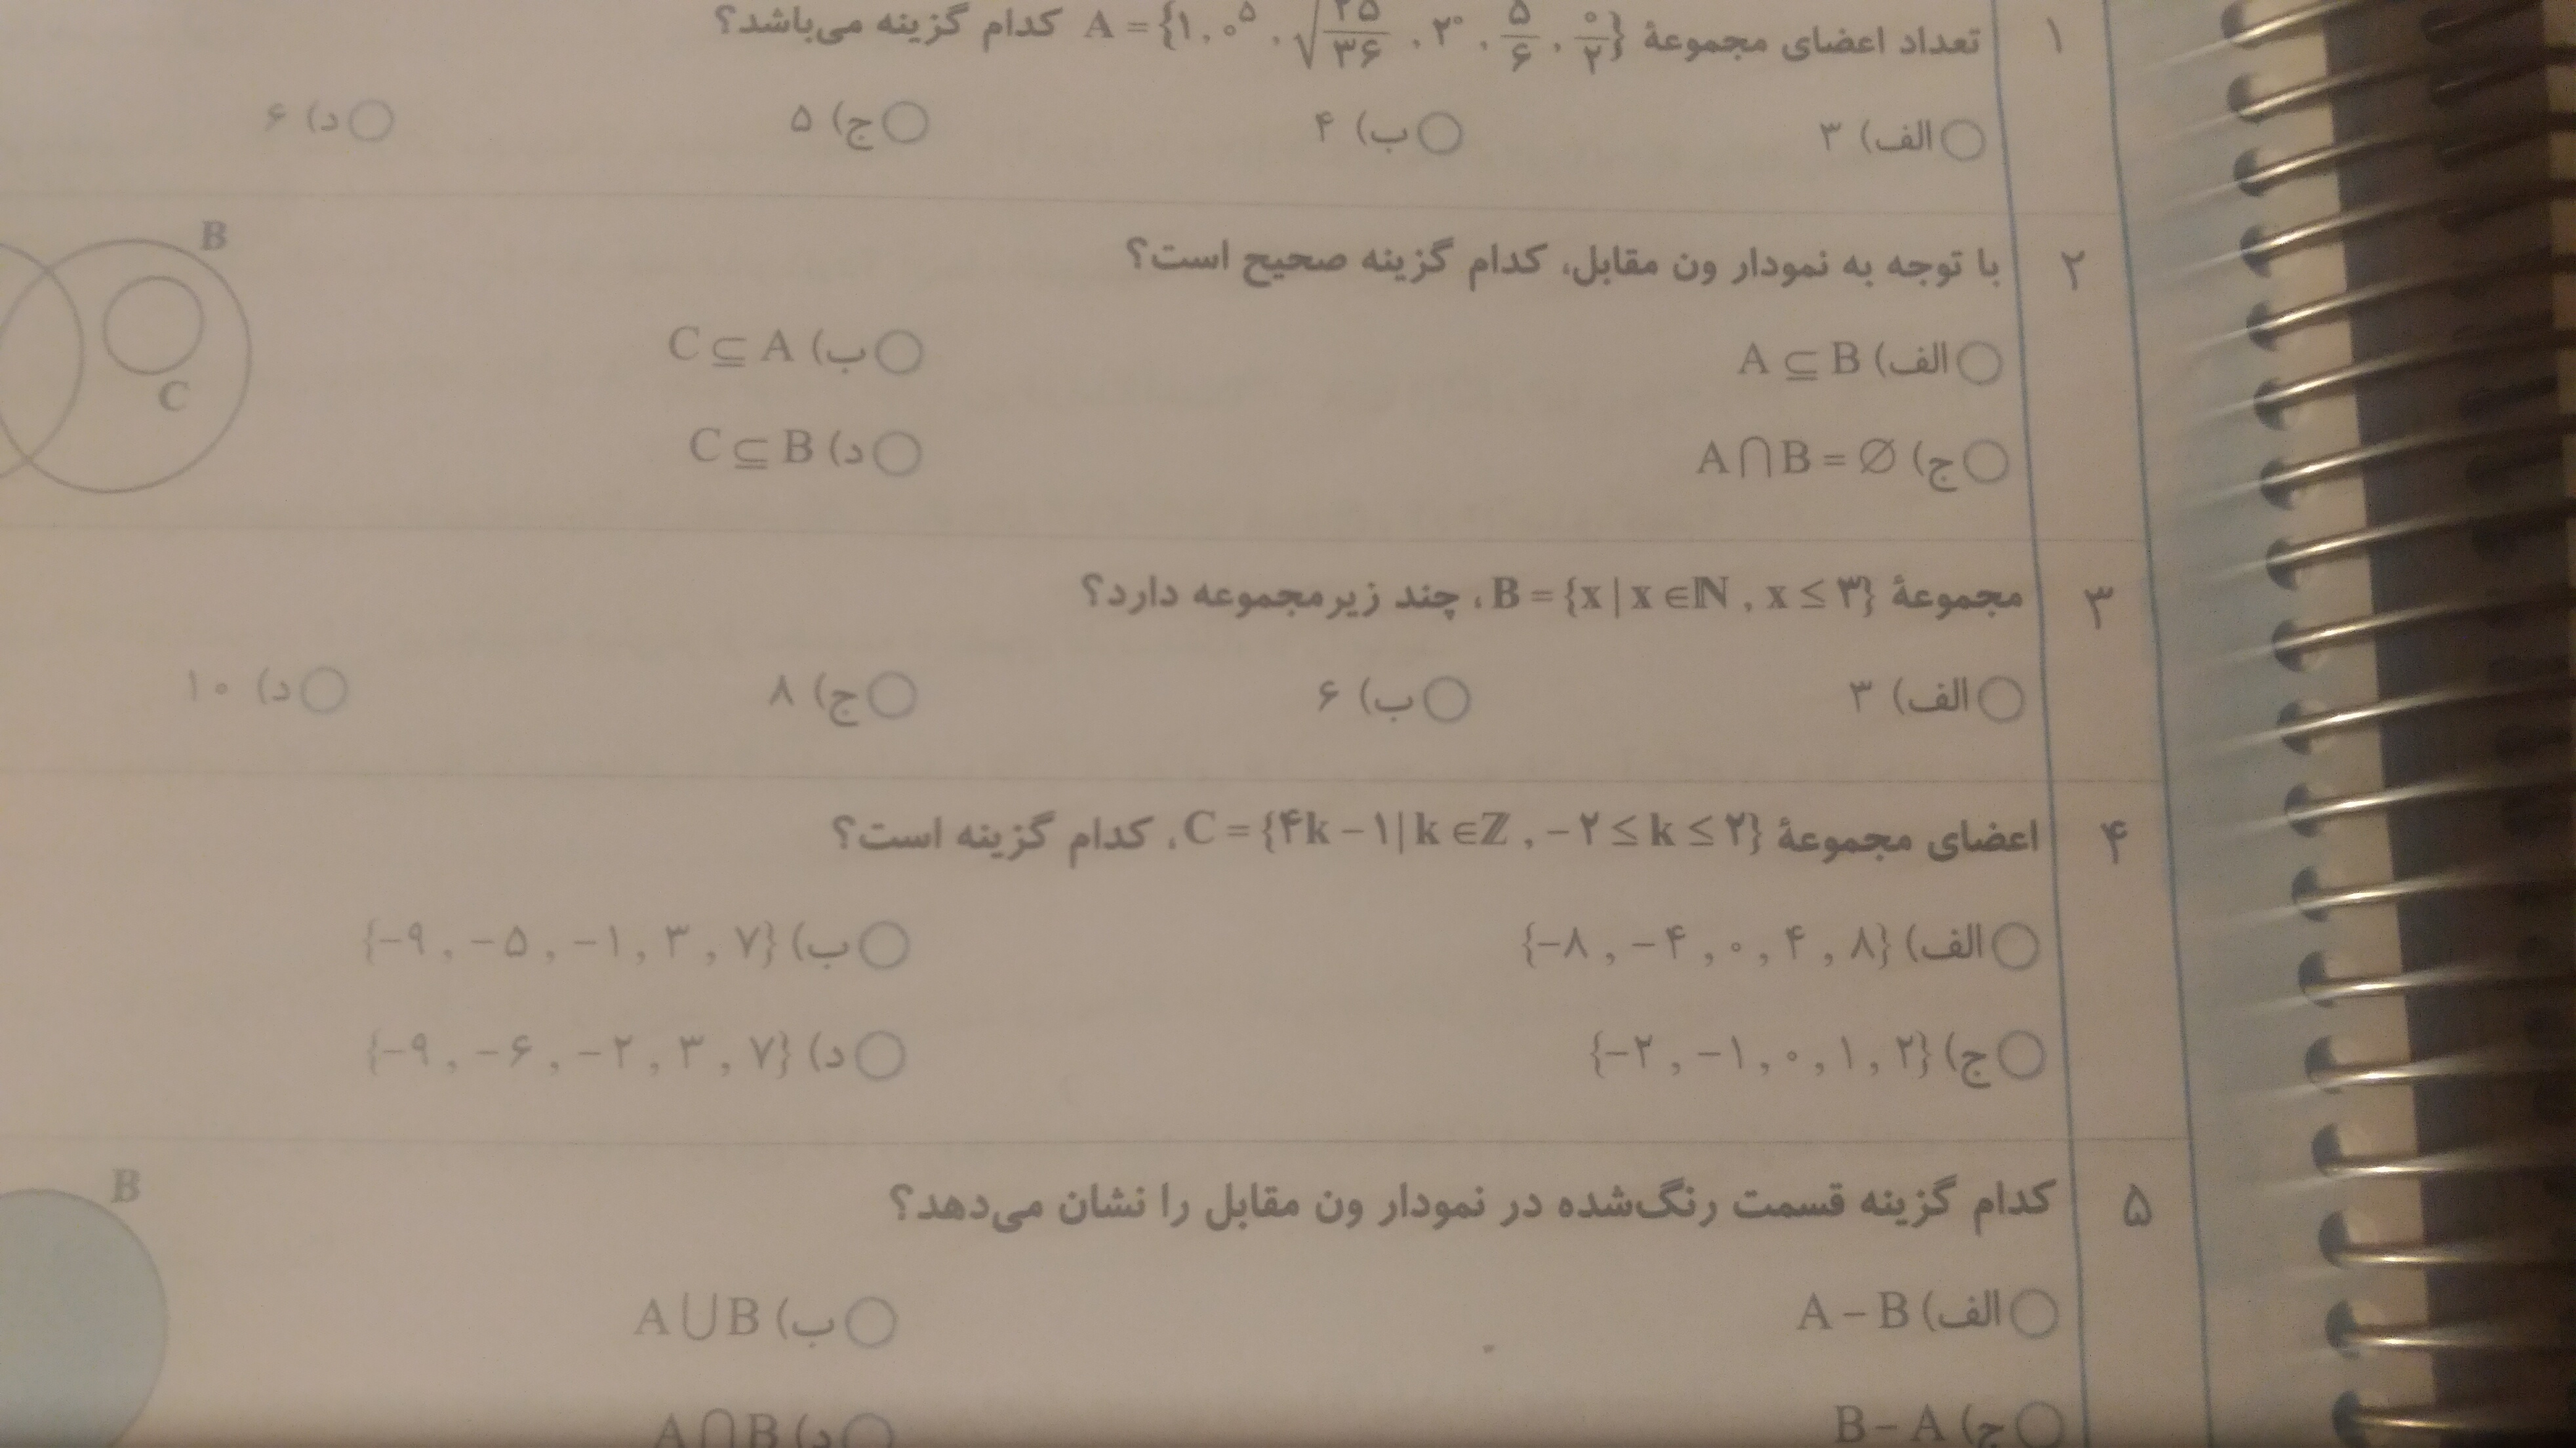 ۱ تعداد اعضای مجموعهٔ A = {۱, ۰^۵, √(۲۵/۳۶), ۲^۰, ۵/۶, ۰/۲} کدام گزینه می‌باشد؟
الف) ۳ ب) ۴ ج) ۵ د) ۶
۲ با توجه به نمودار ون مقابل، کدام گزینه صحیح است؟
B
C
الف) A ⊆ B ب) C ⊆ A
ج) A ∩ B = ∅ د) C ⊆ B
۳ مجموعهٔ B = {x | x ∈ ℕ , x ≤ ۳}، چند زیرمجموعه دارد؟
الف) ۳ ب) ۶ ج) ۸ د) ۱۰
۴ اعضای مجموعهٔ C = {۴k − ۱ | k ∈ ℤ , −۲ ≤ k ≤ ۲}، کدام گزینه است؟
الف) {−۸ , −۴ , ۰ , ۴ , ۸} ب) {−۹ , −۵ , −۱ , ۳ , ۷}
ج) {−۲ , −۱ , ۰ , ۱ , ۲} د) {−۹ , −۶ , −۲ , ۳ , ۷}
۵ کدام گزینه قسمت رنگ‌شده در نمودار ون مقابل را نشان می‌دهد؟
B
الف) A − B ب) A ∪ B
ج) B − A د) A ∩ B